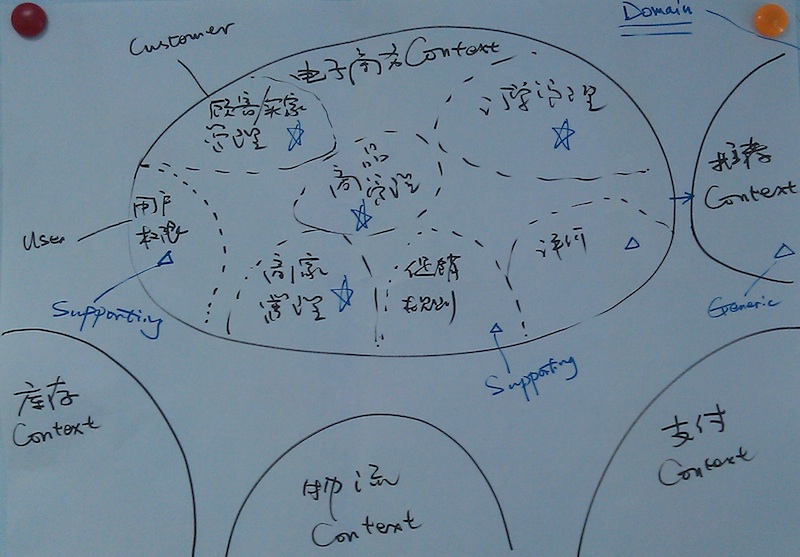 Domain
Customer
电子商务Context
顾客/买家
管理
订单管理
商品
管理
推荐
Context
用户
权限
User
评价
商家
管理
促销
规则
Supporting
Generic
Supporting
库存
Context
物流
Context
支付
Context